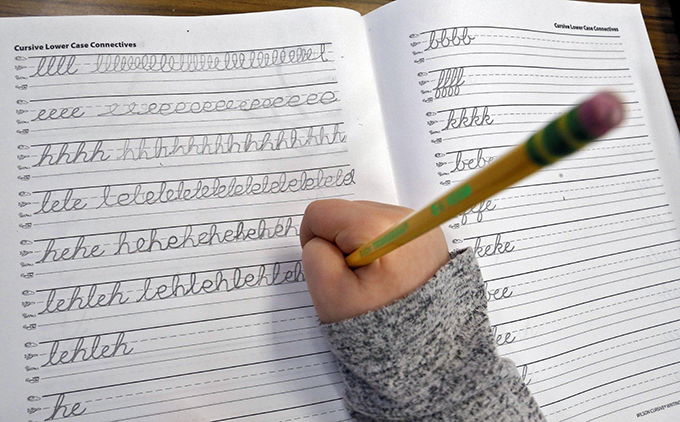 Cursive Lower Case Connectives
llll
eeee eeeeeeeeeeeeee
hhhh hhhhhhhhhhhhhh
lele lelelelelelelelelele
hehe hehehehehehehh
lehleh lehlehlehleh
lehleh
he
Cursive Lower Case Connectives
bbbb
ffff
kkkk
bebe
fefe
keke
ee
ee
WILSON CURSIVE WRITING